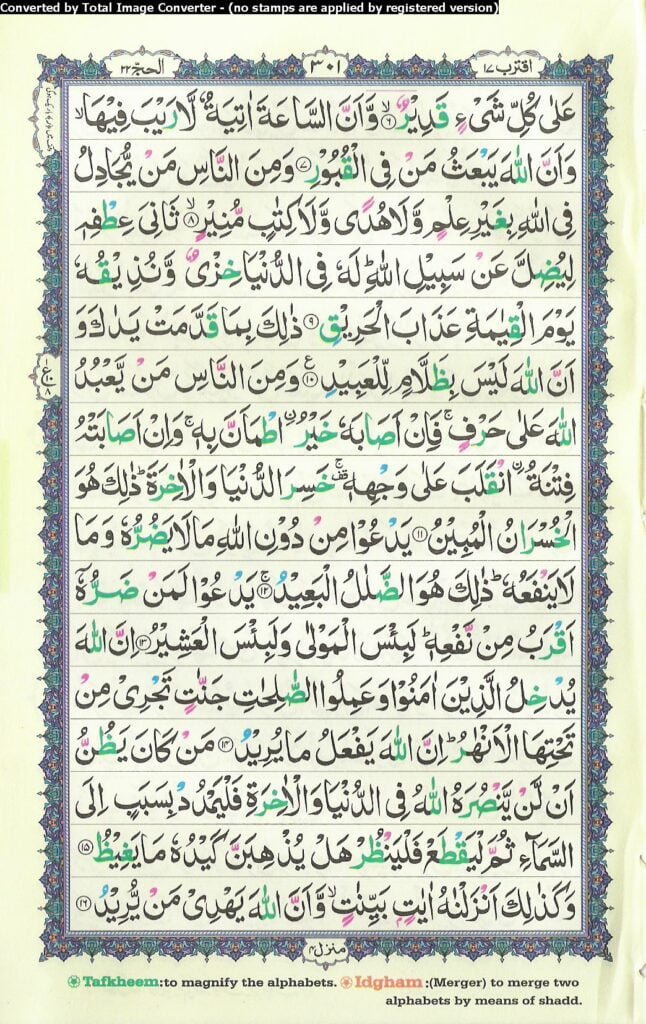 Converted by Total Image Converter - (no stamps are applied by registered version)
اقترب ١٧
٣٠١
الحج ٢٢
عَلٰى كُلِّ شَىْءٍ قَدِيْرٌ ۙ‏﴿۶﴾ وَّاَنَّ السَّاعَةَ اٰتِيَةٌ لَّا رَيْبَ فِيْهَا ۙ
وَاَنَّ اللّٰهَ يَبْعَثُ مَنْ فِى الْقُبُوْرِ ﴿۷﴾ وَمِنَ النَّاسِ مَنْ يُّجَادِلُ
فِى اللّٰهِ بِغَيْرِ عِلْمٍ وَّلَا هُدًى وَّلَا كِتٰبٍ مُّنِيْرٍ ۙ ﴿۸﴾ ثَانِىَ عِطْفِهٖ
لِيُضِلَّ عَنْ سَبِيْلِ اللّٰهِ ؕ لَهٗ فِى الدُّنْيَا خِزْىٌ وَّنُذِيْقُهٗ
يَوْمَ الْقِيٰمَةِ عَذَابَ الْحَرِيْقِ ﴿۹﴾ ذٰلِكَ بِمَا قَدَّمَتْ يَدٰكَ وَ
اَنَّ اللّٰهَ لَيْسَ بِظَلَّامٍ لِّلْعَبِيْدِ ﴿۱۰﴾ وَمِنَ النَّاسِ مَنْ يَّعْبُدُ
اللّٰهَ عَلٰى حَرْفٍ ۚ فَاِنْ اَصَابَهٗ خَيْرُ ۨاطْمَاَنَّ بِهٖ ۚ وَاِنْ اَصَابَتْهُ
فِتْنَةُ ۨانْقَلَبَ عَلٰى وَجْهِهٖ ۚ خَسِرَ الدُّنْيَا وَالْاٰخِرَةَ ؕ ذٰلِكَ هُوَ
الْخُسْرَانُ الْمُبِيْنُ ﴿۱۱﴾ يَدْعُوْا مِنْ دُوْنِ اللّٰهِ مَا لَا يَضُرُّهٗ وَمَا
لَا يَنْفَعُهٗ ؕ ذٰلِكَ هُوَ الضَّلٰلُ الْبَعِيْدُ ۚ ﴿۱۲﴾ يَدْعُوْا لَمَنْ ضَرُّهٗۤ
اَقْرَبُ مِنْ نَّفْعِهٖ ؕ لَبِئْسَ الْمَوْلٰى وَلَبِئْسَ الْعَشِيْرُ ﴿۱۳﴾ اِنَّ اللّٰهَ
يُدْخِلُ الَّذِيْنَ اٰمَنُوْا وَعَمِلُوا الصّٰلِحٰتِ جَنّٰتٍ تَجْرِىْ مِنْ
تَحْتِهَا الْاَنْهٰرُ ؕ اِنَّ اللّٰهَ يَفْعَلُ مَا يُرِيْدُ ﴿۱۴﴾ مَنْ كَانَ يَظُنُّ
اَنْ لَّنْ يَّنْصُرَهُ اللّٰهُ فِى الدُّنْيَا وَالْاٰخِرَةِ فَلْيَمْدُدْ بِسَبَبٍ اِلَى
السَّمَآءِ ثُمَّ لْيَقْطَعْ فَلْيَنْظُرْ هَلْ يُذْهِبَنَّ كَيْدُهٗ مَا يَغِيْظُ ﴿۱۵﴾
وَكَذٰلِكَ اَنْزَلْنٰهُ اٰيٰتٍۢ بَيِّنٰتٍ ۙ وَّاَنَّ اللّٰهَ يَهْدِىْ مَنْ يُّرِيْدُ ﴿۱۶﴾
منزل ٤
Tafkheem:to magnify the alphabets. Idgham :(Merger) to merge two
alphabets by means of shadd.